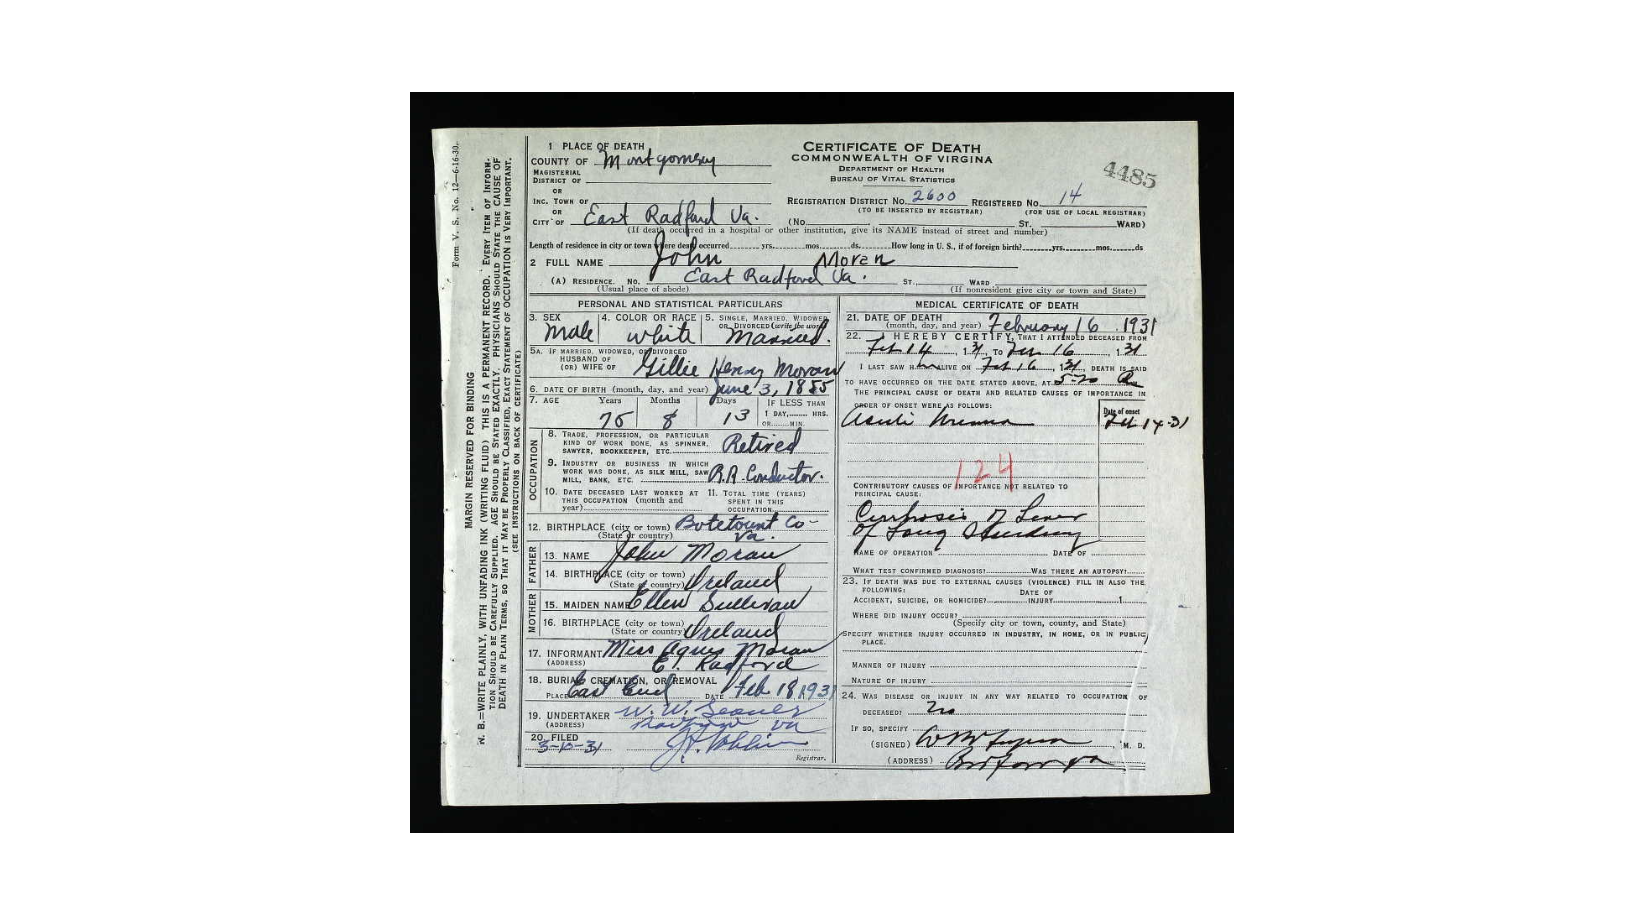 Form V. S. No. 12—6-16-30.
MARGIN RESERVED FOR BINDING
N. B.—WRITE PLAINLY, WITH UNFADING INK (WRITING FLUID) THIS IS A PERMANENT RECORD. EVERY ITEM OF INFORM-
TION SHOULD BE CAREFULLY SUPPLIED. AGE SHOULD BE STATED EXACTLY. PHYSICIANS SHOULD STATE THE CAUSE OF
DEATH IN PLAIN TERMS, SO THAT IT MAY BE PROPERLY CLASSIFIED. EXACT STATEMENT OF OCCUPATION IS VERY IMPORTANT.
(SEE INSTRUCTIONS ON BACK OF CERTIFICATE)
1 PLACE OF DEATH
COUNTY OF Montgomery
MAGISTERIAL
DISTRICT OF
OR
INC. TOWN OF
OR
CITY OF East Radford Va.
CERTIFICATE OF DEATH
COMMONWEALTH OF VIRGINA
DEPARTMENT OF HEALTH
BUREAU OF VITAL STATISTICS
4485
REGISTRATION DISTRICT NO. 2600 REGISTERED NO. 14
(TO BE INSERTED BY REGISTRAR) (FOR USE OF LOCAL REGISTRAR)
(No. ST. WARD)
(If death occurred in a hospital or other institution, give its NAME instead of street and number)
Length of residence in city or town where death occurred yrs. mos. ds. How long in U. S., if of foreign birth? yrs. mos. ds
2 FULL NAME John Moran
(A) RESIDENCE. NO. East Radford Va. ST., WARD
(Usual place of abode) (If nonresident give city or town and State)
PERSONAL AND STATISTICAL PARTICULARS
3. SEX 4. COLOR OR RACE 5. SINGLE, MARRIED, WIDOWED
OR DIVORCED (write the word)
Male white Married.
5A. IF MARRIED, WIDOWED, OR DIVORCED
HUSBAND OF
(OR) WIFE OF Gillie Henry Moran
6. DATE OF BIRTH (month, day, and year) June 3, 1855
7. AGE Years Months Days IF LESS THAN
1 DAY, HRS.
OR MIN.
75 8 13
OCCUPATION
8. TRADE, PROFESSION, OR PARTICULAR
KIND OF WORK DONE, AS SPINNER,
SAWYER, BOOKKEEPER, ETC. Retired
9. INDUSTRY OR BUSINESS IN WHICH
WORK WAS DONE, AS SILK MILL, SAW
MILL, BANK, ETC. R.R. Conductor.
10. DATE DECEASED LAST WORKED AT 11. TOTAL TIME (YEARS)
THIS OCCUPATION (month and SPENT IN THIS
year) OCCUPATION
12. BIRTHPLACE (city or town) Botetourt Co-
(State or country) Va.
FATHER
13. NAME John Moran
14. BIRTHPLACE (city or town)
(State or country) Ireland
MOTHER
15. MAIDEN NAME Ellen Sullivan
16. BIRTHPLACE (city or town)
(State or country) Ireland
17. INFORMANT Miss Agnes Moran
(ADDRESS) E. Radford
18. BURIAL, CREMATION, OR REMOVAL
PLACE East End DATE Feb 18 1931
19. UNDERTAKER W. W.
(ADDRESS) Va
20. FILED
3-10-31
Registrar.
MEDICAL CERTIFICATE OF DEATH
21. DATE OF DEATH
(month, day, and year) February 16, 1931
22. I HEREBY CERTIFY, THAT I ATTENDED DECEASED FROM
Feb 14, 1931, TO Feb 16, 1931
I LAST SAW HIM ALIVE ON Feb 16, 1931, DEATH IS SAID
TO HAVE OCCURRED ON THE DATE STATED ABOVE, AT 5-20
THE PRINCIPAL CAUSE OF DEATH AND RELATED CAUSES OF IMPORTANCE IN
ORDER OF ONSET WERE AS FOLLOWS: Date of onset
Acute Uremia Feb 14-31
124
CONTRIBUTORY CAUSES OF IMPORTANCE NOT RELATED TO
PRINCIPAL CAUSE:
Cirrhosis of Liver
of Long Standing
NAME OF OPERATION DATE OF
WHAT TEST CONFIRMED DIAGNOSIS? WAS THERE AN AUTOPSY?
23. IF DEATH WAS DUE TO EXTERNAL CAUSES (VIOLENCE) FILL IN ALSO THE
FOLLOWING: DATE OF
ACCIDENT, SUICIDE, OR HOMICIDE? INJURY 1
WHERE DID INJURY OCCUR?
(Specify city or town, county, and State)
SPECIFY WHETHER INJURY OCCURRED IN INDUSTRY, IN HOME, OR IN PUBLIC
PLACE.
MANNER OF INJURY
NATURE OF INJURY
24. WAS DISEASE OR INJURY IN ANY WAY RELATED TO OCCUPATION OF
DECEASED? No
IF SO, SPECIFY
(SIGNED) M. D.
(ADDRESS)